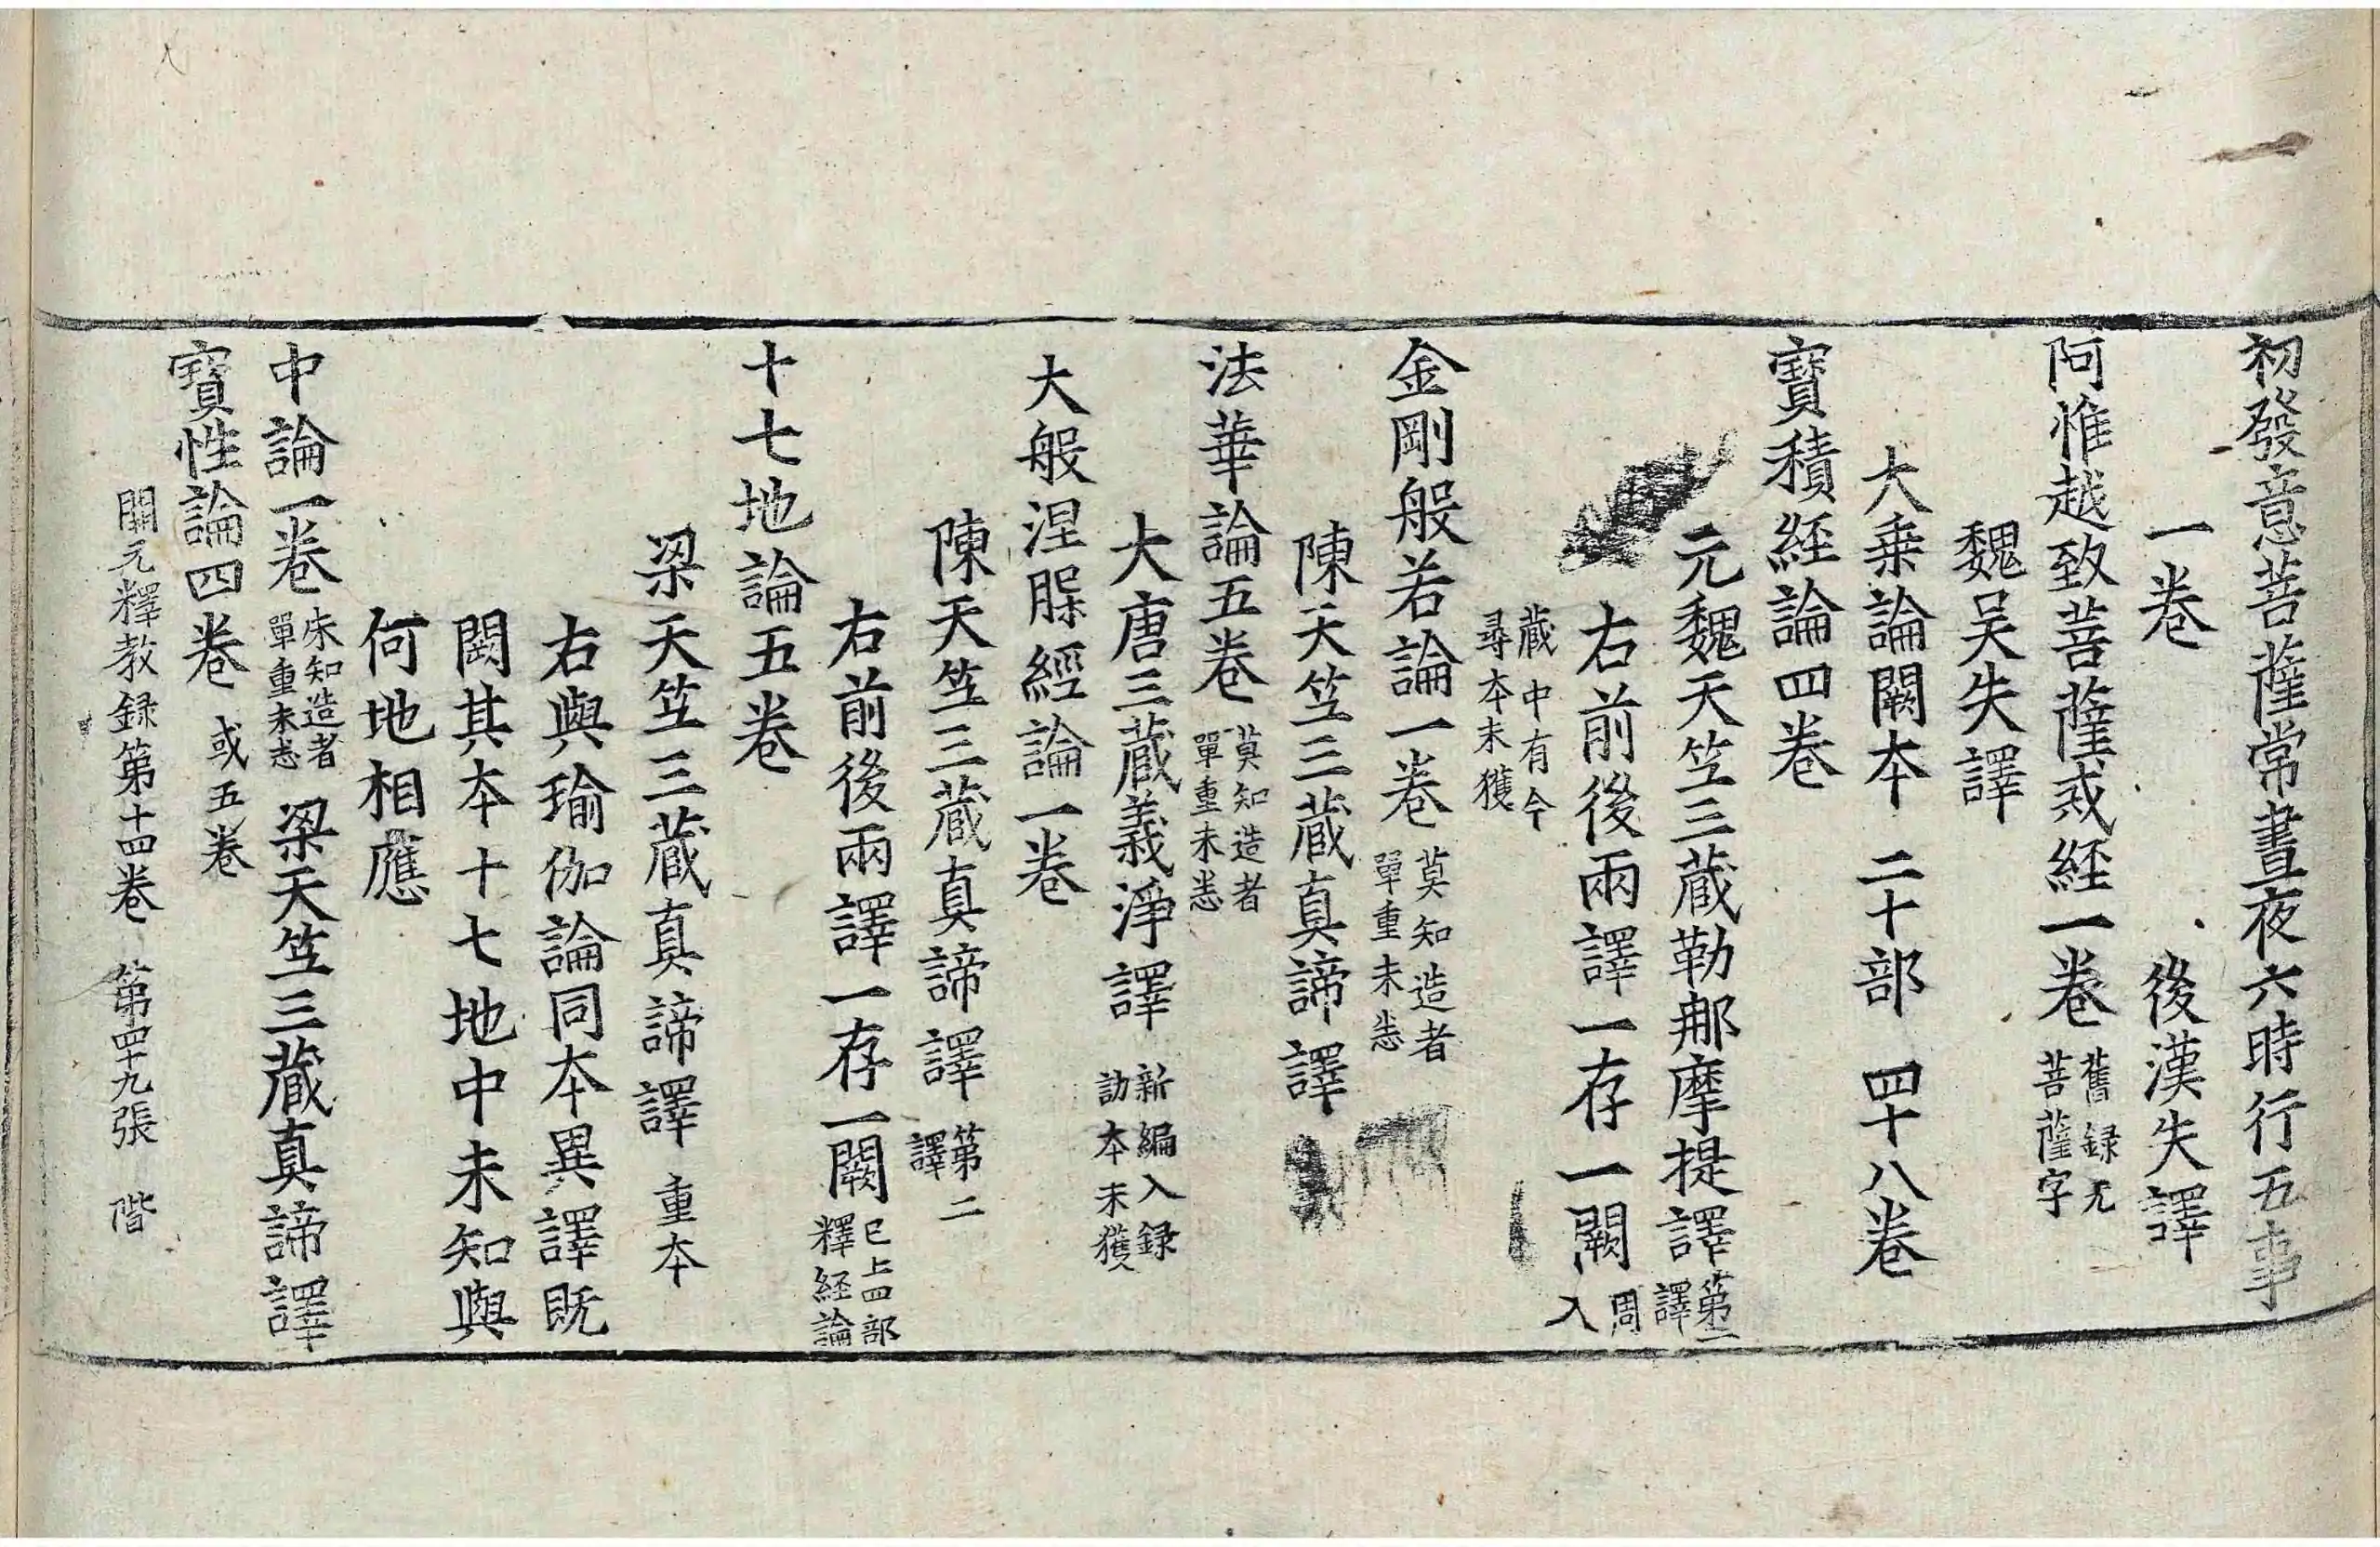 初發意菩薩常晝夜六時行五事
一卷 後漢失譯
阿惟越致菩薩戒経一卷 舊録无菩薩字
魏吴失譯
大乗論闕本 二十部 四十八卷
寶積経論四卷
元魏天竺三蔵勒那摩提譯 第二譯
右前後兩譯一存一闕 周入
蔵中有今尋本未獲
金剛般若論一卷 莫知造者單重未悉
陳天竺三蔵真諦譯
法華論五卷 莫知造者單重未悉
大唐三蔵義淨譯 新編入録訪本未獲
大般涅槃經論一卷
陳天竺三蔵真諦譯 第二譯
右前後兩譯一存一闕 已上四部釋経論
十七地論五卷
梁天竺三蔵真諦譯 重本
右與瑜伽論同本異譯既
闕其本十七地中未知與
何地相應
中論一卷 未知造者單重未悉 梁天竺三蔵真諦譯
寶性論四卷 或五卷
開元釋教録第十四卷 第四十九張 階